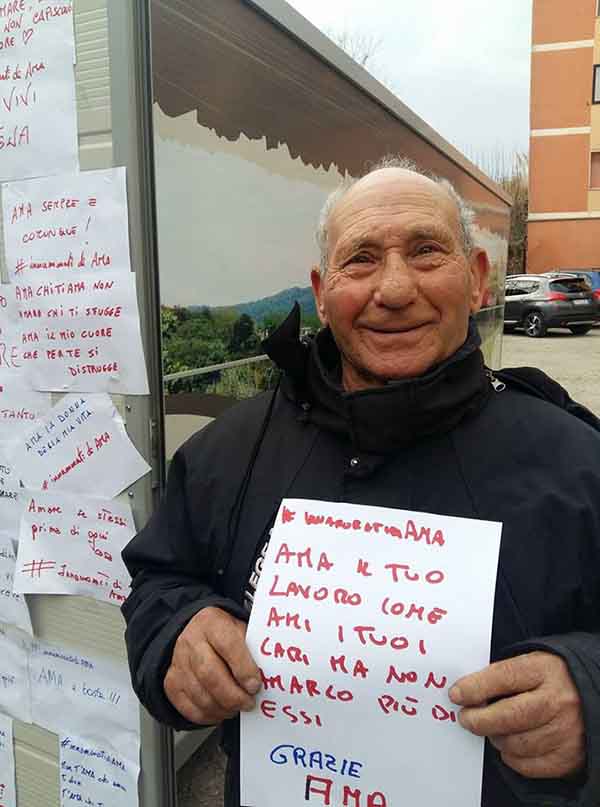 MARE,
NON CAPISCO
ORE ♡
nnamorati di Ama
VIVI
GNA
AMA SEMPRE E
COMUNQUE!
# innamorati di Ama
AMA CHI TI AMA NON
AMARE CHI TI SFUGGE
AMA IL MIO CUORE
CHE PER TE SI
DISTRUGGE
TANTO
AMA LA DONNA
DELLA MIA VITA
# innamorati di AMA
Amore se stessi
prima di ogni
cosa
# Innamorati di
Ama
AMA e basta!!!
# INNAMORATIDIAMA
AMA IL TUO
LAVORO COME
AMI I TUOI
CARI MA NON
AMARLO PIÙ DI
ESSI
GRAZIE
AMA